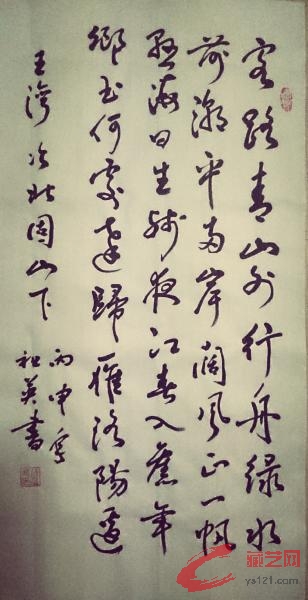 客路青山外行舟綠水
前潮平兩岸闊風正一帆
懸海日生殘夜江春入舊年
鄉書何處達歸雁洛陽邊
王灣次北固山下
丙申年
祖英書
藏艺网
ys121.com